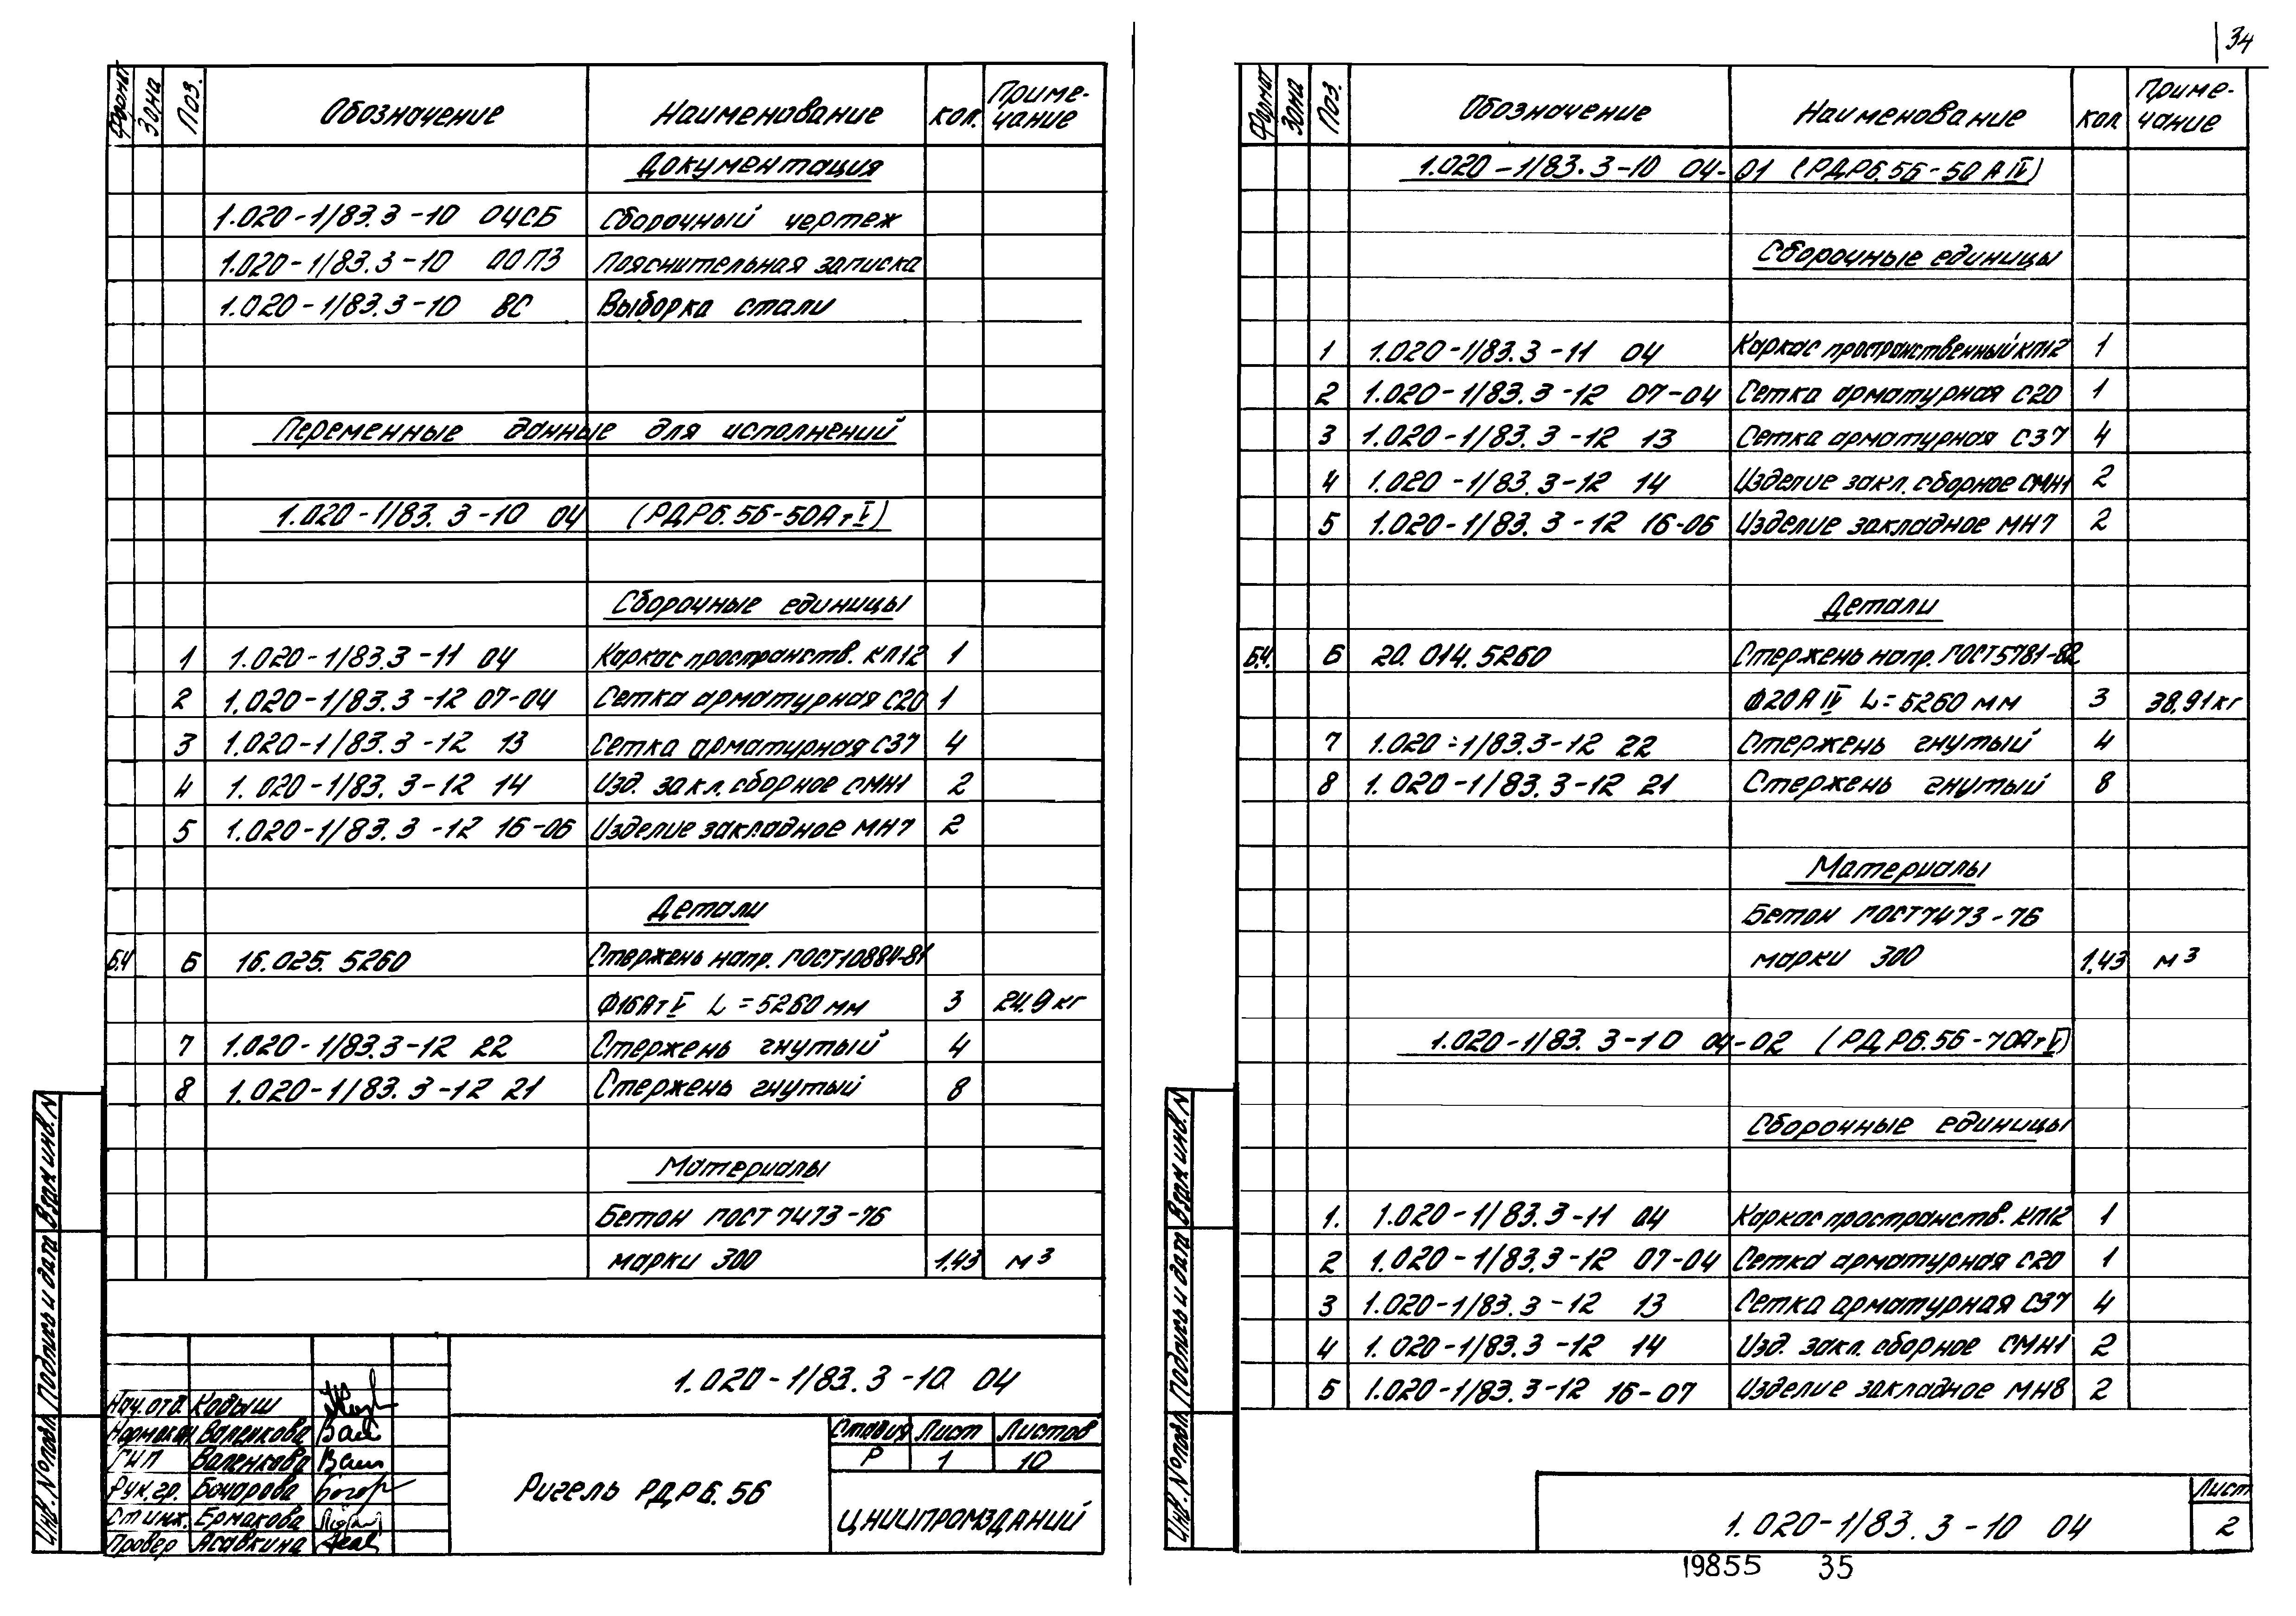 34
Формат Зона Поз. Обозначение Наименование Кол. Приме-
чание
Документация
1.020-1/83.3-10 04СБ Сборочный чертеж
1.020-1/83.3-10 00ПЗ Пояснительная записка
1.020-1/83.3-10 ВС Выборка стали
Переменные данные для исполнений
1.020-1/83.3-10 04 (РДР6.56-50АтV)
Сборочные единицы
1 1.020-1/83.3-11 04 Каркас пространств. КП12 1
2 1.020-1/83.3-12 07-04 Сетка арматурная С20 1
3 1.020-1/83.3-12 13 Сетка арматурная С37 4
4 1.020-1/83.3-12 14 Изд. закл. сборное СМН1 2
5 1.020-1/83.3-12 16-06 Изделие закладное МН7 2
Детали
Б.Ч 6 16.025.5260 Стержень напр. ГОСТ10884-81
Ф16АтV L=5260 мм 3 24.9 кг
7 1.020-1/83.3-12 22 Стержень гнутый 4
8 1.020-1/83.3-12 21 Стержень гнутый 8
Материалы
Бетон ГОСТ 7473-76
марки 300 1,43 м3
Инв. № подл. Подпись и дата Взам инв. N
1.020-1/83.3-10 04
Нач. отд. Кодыш
Нормокон Валенкова
ГИП Валенкова
Рук. гр. Бочарова
Ст инж. Ермакова
Провер Асавкина
Ригель РДР6.56
Стадия Лист Листов
Р 1 10
ЦНИИПРОМЗДАНИЙ
Формат Зона Поз. Обозначение Наименование Кол Приме-
чание
1.020-1/83.3-10 04-01 (РДР6.56-50АIV)
Сборочные единицы
1 1.020-1/83.3-11 04 Каркас пространственный КП12 1
2 1.020-1/83.3-12 07-04 Сетка арматурная С20 1
3 1.020-1/83.3-12 13 Сетка арматурная С37 4
4 1.020-1/83.3-12 14 Изделие закл. сборное СМН1 2
5 1.020-1/83.3-12 16-06 Изделие закладное МН7 2
Детали
Б.Ч. 6 20.014.5260 Стержень напр. ГОСТ5781-82
Ф20АIV L=5260 мм 3 38,91 кг
7 1.020-1/83.3-12 22 Стержень гнутый 4
8 1.020-1/83.3-12 21 Стержень гнутый 8
Материалы
Бетон ГОСТ7473-76
марки 300 1,43 м3
1.020-1/83.3-10 04-02 (РДР6.56-70АтV)
Сборочные единицы
1. 1.020-1/83.3-11 04 Каркас пространств. КП12 1
2 1.020-1/83.3-12 07-04 Сетка арматурная С20 1
3 1.020-1/83.3-12 13 Сетка арматурная С37 4
4 1.020-1/83.3-12 14 Изд. закл. сборное СМН1 2
5 1.020-1/83.3-12 16-07 Изделие закладное МН8 2
Инв. № подл. Подпись и дата Взам инв. N
1.020-1/83.3-10 04
Лист
2
19855 35